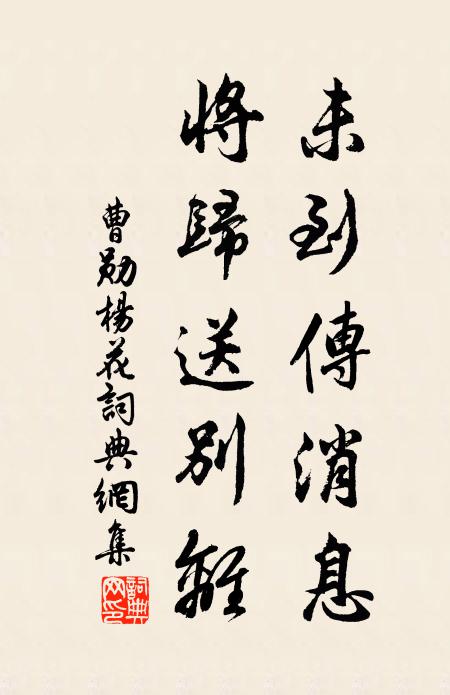 未到傳消息
將歸送別離
曹勛楊花詞典網集
詞典網印